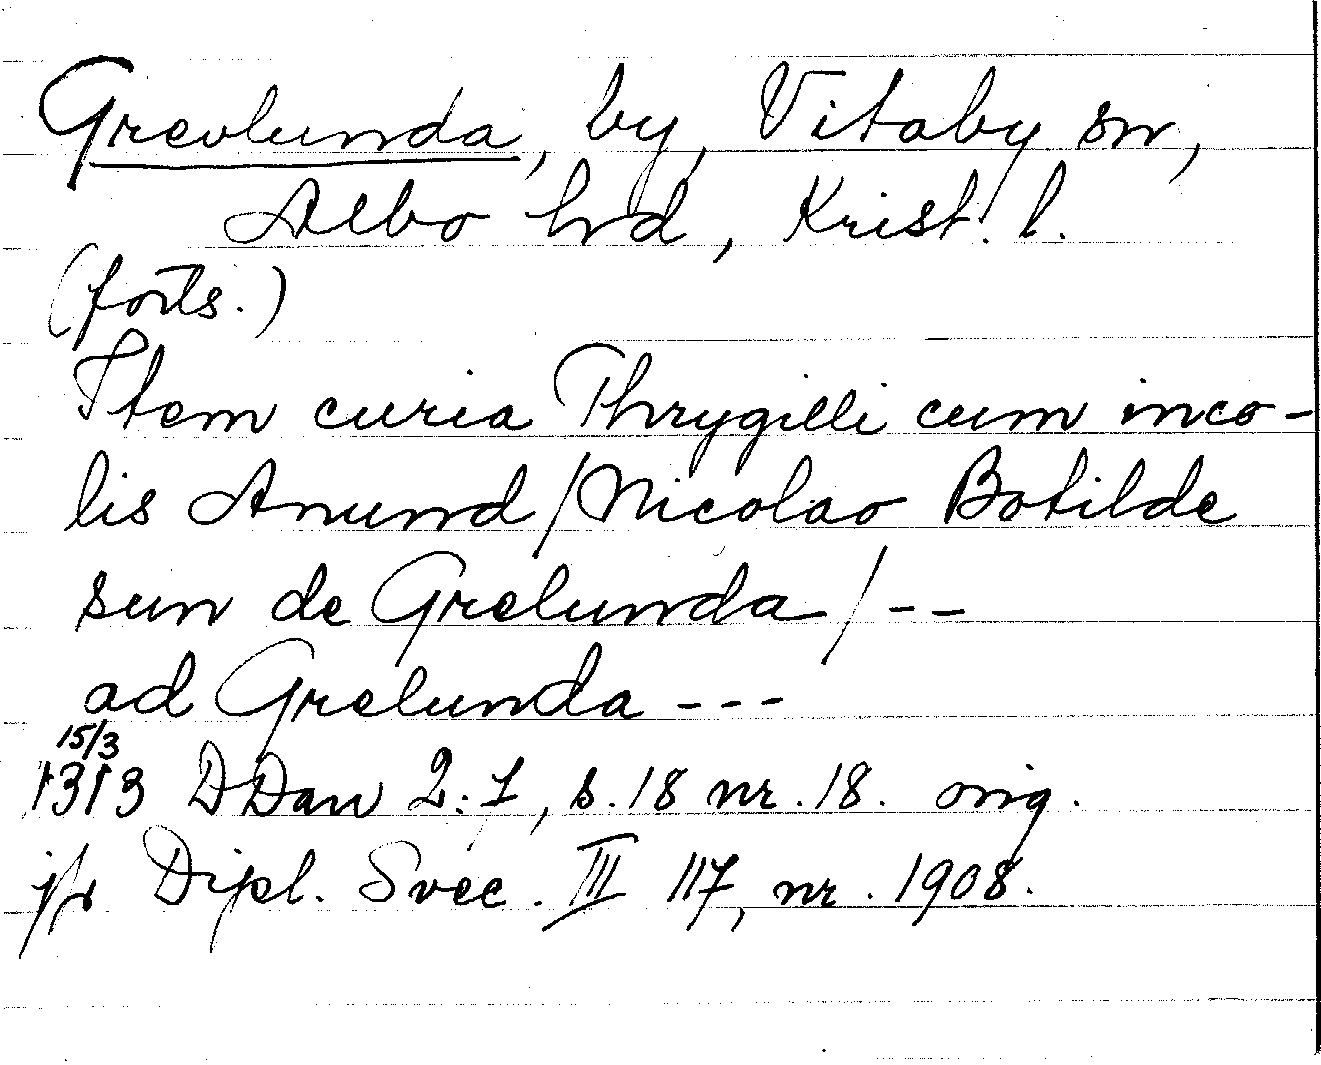 Grevlunda, by, Vitaby sn,
Albo hd, Krist. l.
(forts.)
Item curia Thrygilli cum inco-
lis Anund/Nicolao Botilde
sun de Grelunda/--
ad Grelunda ---
15/3
1313 DDan 2:7, s.18 nr.18. orig.
jfr Dipl. Svec. III 117, nr. 1908.